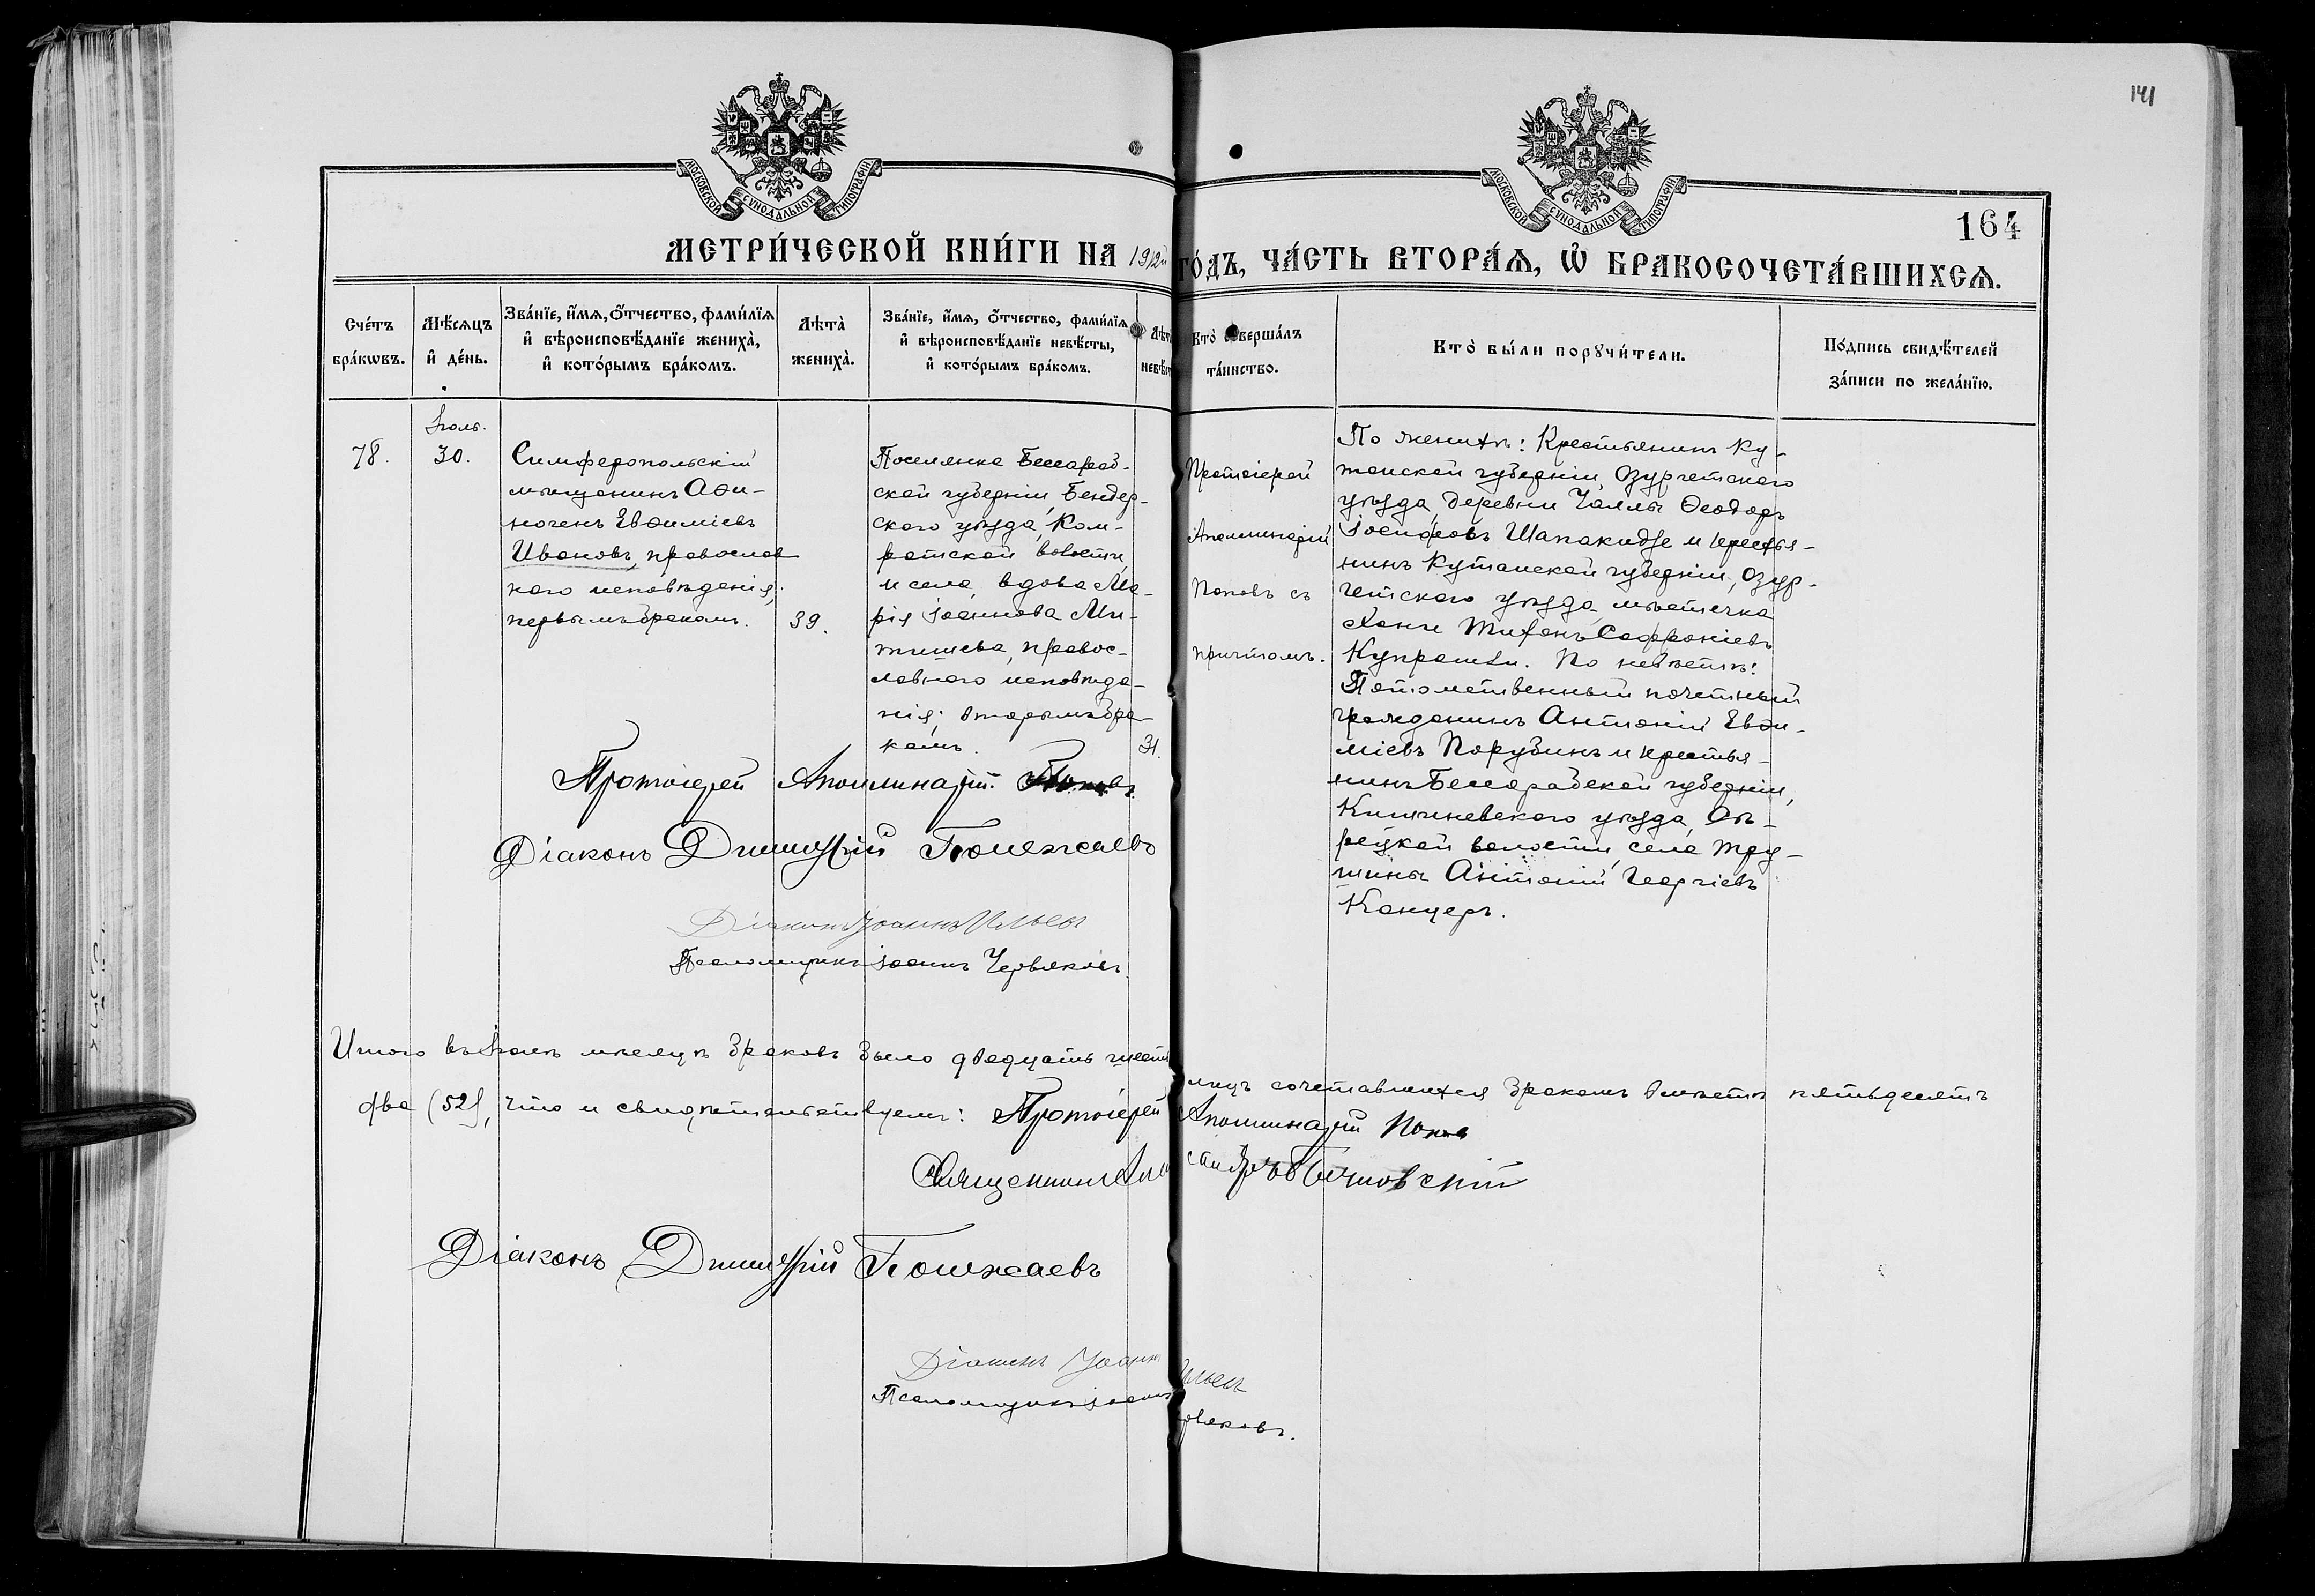 141
164
МОСКОВСКОЙ СѴНОДАЛЬНОЙ ТИПОГРАФІИ
МОСКОВСКОЙ СѴНОДАЛЬНОЙ ТИПОГРАФІИ
МЕТРИ́ЧЕСКОЙ КНИ́ГИ НА 1912й ГО́ДЪ, ЧА́СТЬ ВТОРА́Ѧ, Ѡ҆ БРАКОСОЧЕТА́ВШИХСѦ.
Сче́тъ
бра́кѡвъ.
Мѣ́сяцъ
и҆ де́нь.
Зва́нїе, и҆́мя, ѻ҆́тчество, фами́лїя
и҆ вѣроисповѣ́данїе жениха̀,
и҆ кото́рымъ бра́комъ.
Лѣта̀
жениха̀.
Зва́нїе, и҆́мя, ѻ҆́тчество, фами́лїя
и҆ вѣроисповѣ́данїе невѣ́сты,
и҆ кото́рымъ бра́комъ.
Лѣта
невѣс
Кто̀ совершалъ
та́инство.
Кто̀ бы́ли порꙋчи́тели.
По́дпись свидѣ́телей
за́писи по жела́нїю.
Іюль.
78.
30.
Симферопольскій
мѣщанинъ Аѳи-
ногенъ Евѳиміевъ
Ивановъ, православ
наго исповѣданія;
первымъ бракомъ.
39.
Поселянка Бессараб-
ской губерніи, Бендер-
скаго уѣзда, Ком-
ратской волости
и села, вдова Ма-
рія Іоаннова Ми-
тишева, правос-
лавнаго исповѣда-
нія; вторымъ бра-
комъ.
31.
Протоіерей
Аполлинарій
Поповъ съ
причтомъ.
По женихѣ: Крестьянинъ Ку-
таиской губерніи, Озургетскаго
уѣзда, деревни Чаллы Ѳеодоръ
Іосифовъ Шапакидзе и крестья-
нинъ Кутаиской губерніи, Озур-
гетскаго уѣзда мѣстечка
Ханы Тихонъ Софроніевъ
Купрашви. По невѣстѣ:
Потомственный почетный
гражданинъ Антоній Евѳи-
міевъ Порубинъ и крестья-
нинъ Бессарабской губерніи,
Кишиневскаго уѣзда,
волости, села Тру-
шины Антоній Георгіевъ
Канцеръ.
Протоіерей Аполлинарій Поповъ
Діаконъ Димитрій Поножаевъ
Діаконъ Іоаннъ Ильев
Псаломщикъ Іоаннъ Червяковъ.
Итого въ Іюлѣ мѣсяцѣ браковъ было двадцать шесть лицъ сочетавшихся бракомъ вмѣстѣ пятьдесятъ
два (52), что и свидѣтельствуемъ: Протоіерей Аполлинарій Поповъ
Священникъ
Діаконъ Димитрій Поножаевъ
Діаконъ Іоаннъ Ильев
Псаломщикъ Іоаннъ рвяковъ.